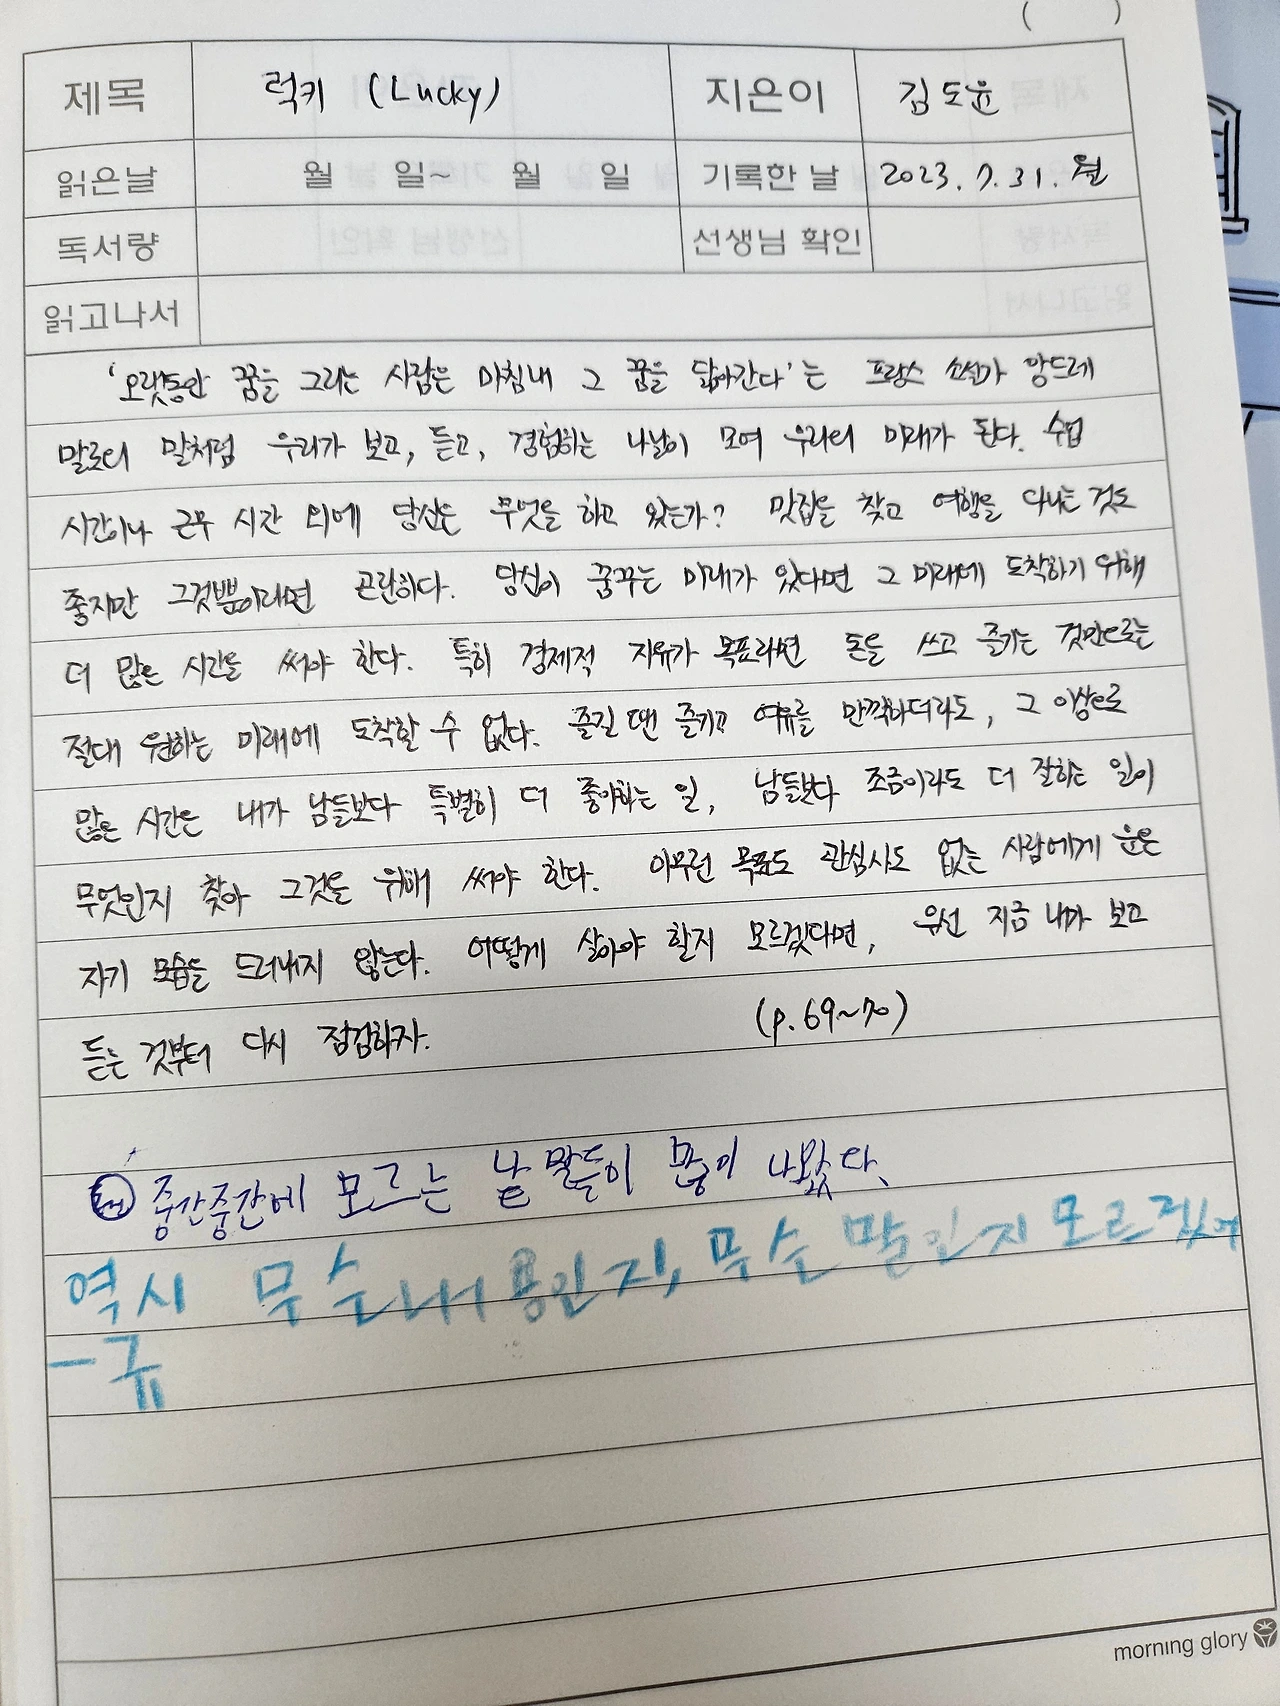 ( )
제목 럭키 (Lucky) 지은이 김도윤
읽은날 월 일~ 월 일 기록한 날 2023. 7. 31. 월
독서량 선생님 확인
읽고나서
'오랫동안 꿈을 그리는 사람은 마침내 그 꿈을 닮아간다'는 프랑스 소설가 앙드레
말로의 말처럼 우리가 보고, 듣고, 경험하는 나날이 모여 우리의 미래가 된다. 수업
시간이나 근무 시간 외에 당신은 무엇을 하고 있는가? 맛집을 찾고 여행을 다니는 것도
좋지만 그것뿐이라면 곤란하다. 당신이 꿈꾸는 미래가 있다면 그 미래에 도착하기 위해
더 많은 시간을 써야 한다. 특히 경제적 자유가 목표라면 돈을 쓰고 즐기는 것만으로는
절대 원하는 미래에 도착할 수 없다. 즐길 땐 즐기고 여유를 만끽하더라도, 그 이상으로
많은 시간은 내가 남들보다 특별히 더 좋아하는 일, 남들보다 조금이라도 더 잘하는 일이
무엇인지 찾아 그것을 위해 써야 한다. 아무런 목표도 관심사도 없는 사람에게 운은
자기 모습을 드러내지 않는다. 어떻게 살아야 할지 모르겠다면, 우선 지금 내가 보고
듣는 것부터 다시 점검하자. (p.69~70)
중간중간에 모르는 낱말들이 많이 나왔다.
역시 무슨내용인지, 무슨 말인지 모르겠어
-규
morning glory